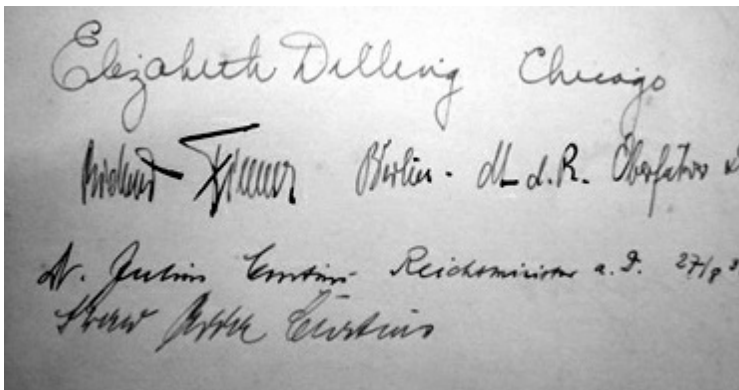 Elizabeth Dilling Chicago
Berlin. M. d. R. Oberführer
Dr. Julius Curtius Reichsminister a. D. 27/8 3
Curtius